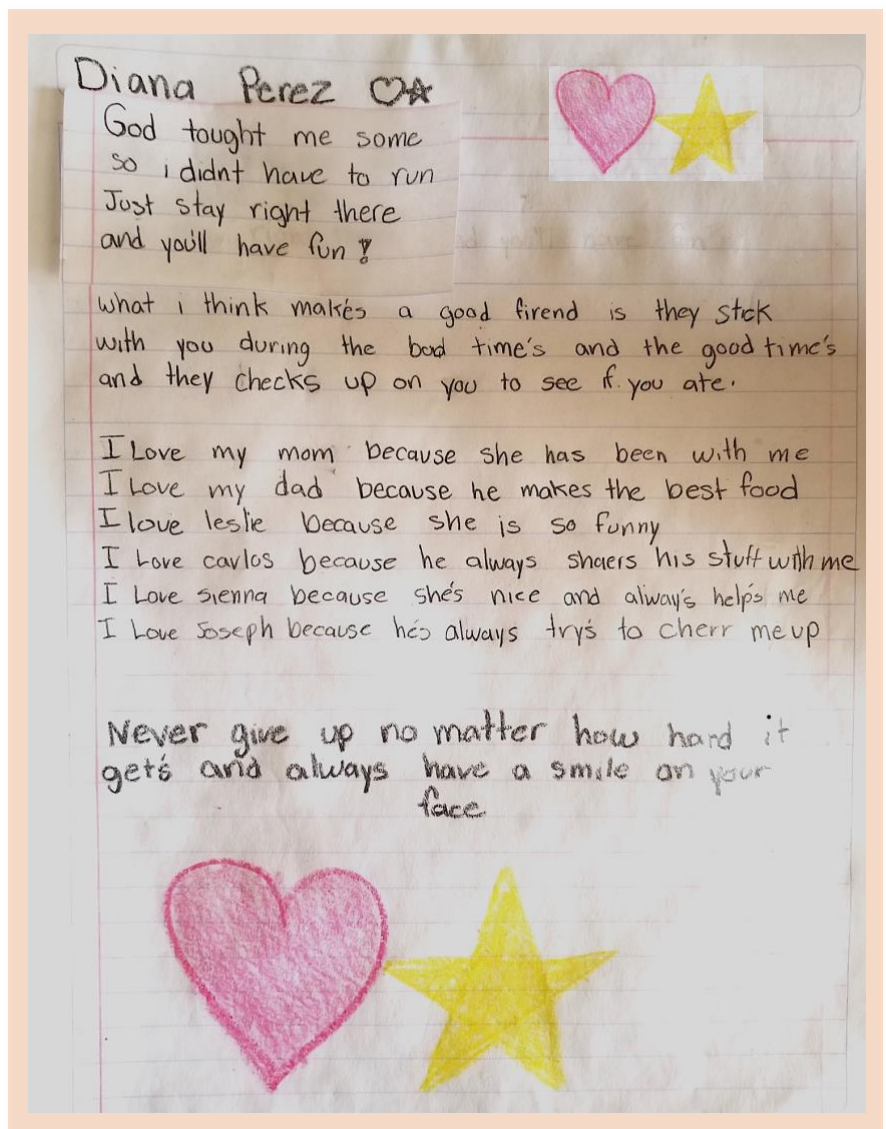 Diana Perez
God tought me some
so i didnt have to run
Just stay right there
and you'll have fun!
what i think makes a good firend is they stick
with you during the bad time's and the good time's
and they checks up on you to see if you ate.
I Love my mom because she has been with me
I Love my dad because he makes the best food
I love leslie because she is so funny
I Love carlos because he always shaers his stuff with me
I Love sienna because she's nice and alway's help's me
I Love Joseph because he's always try's to cherr me up
Never give up no matter how hard it
get's and always have a smile on your
face